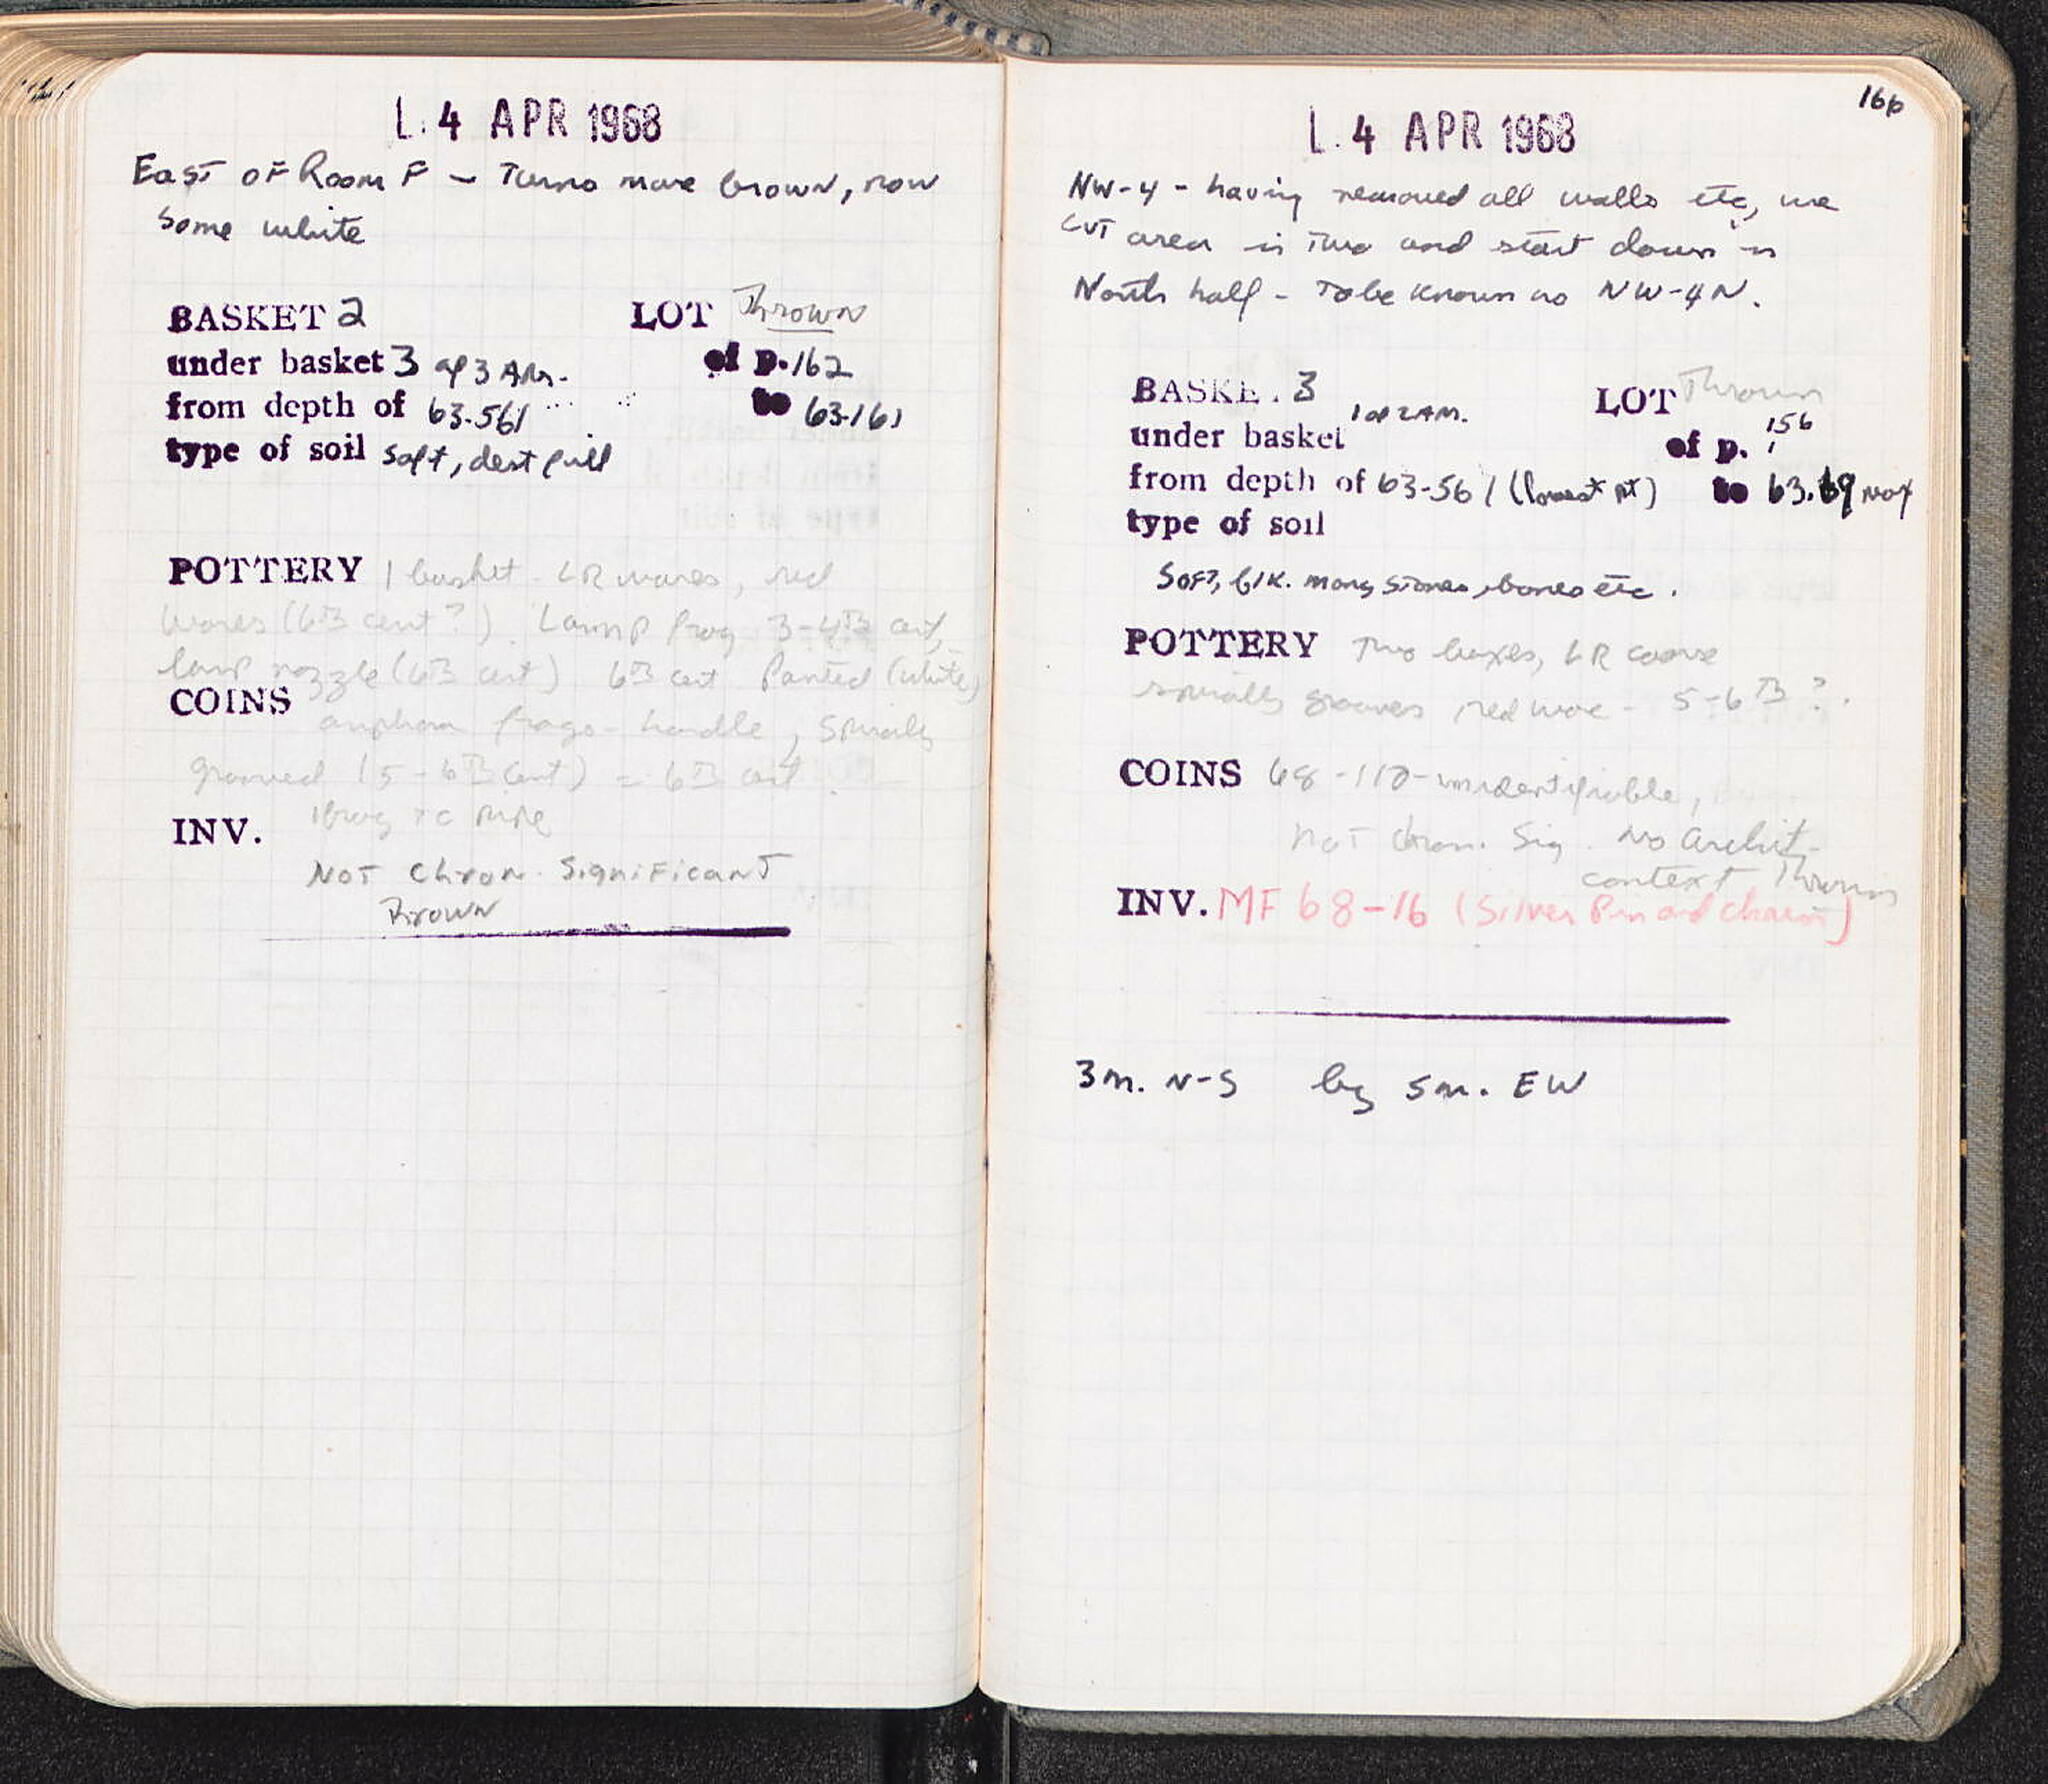 L. 4 APR 1968
East of Room F – Turns more brown, now
some white
BASKET 2 LOT Thrown
under basket 3 of 3 Apr. of p. 162
from depth of 63.561 to 63.161
type of soil soft, dest fill
POTTERY 1 basket - LR wares, red
wares (6th cent?). Lamp frag 3-4th cent,
lamp nozzle (6th cent) 6th cent Painted (white)
COINS
amphora frags - handle, spirally
grooved (5-6th cent) = 6th cent
INV. 1 frag TC pipe
Not chron. significant
Thrown
166
L. 4 APR 1968
NW-4 - having removed all walls etc, we
cut area in two and start down in
North half - To be known as NW-4N.
BASKE . 3 LOT Thrown
under basket 1 of 2 Apr. of p. 156
from depth of 63.561 (lowest pt) to 63.69 max
type of soil
Soft, blk. many stones, bones etc.
POTTERY Two boxes, LR coarse
spirally grooves, red ware - 5-6th?.
COINS 68-110 - unidentifiable,
not chron. sig. No archit.
context Thrown
INV. MF 68-16 (Silver Pin and chain)
3m. N-S by 5m. EW